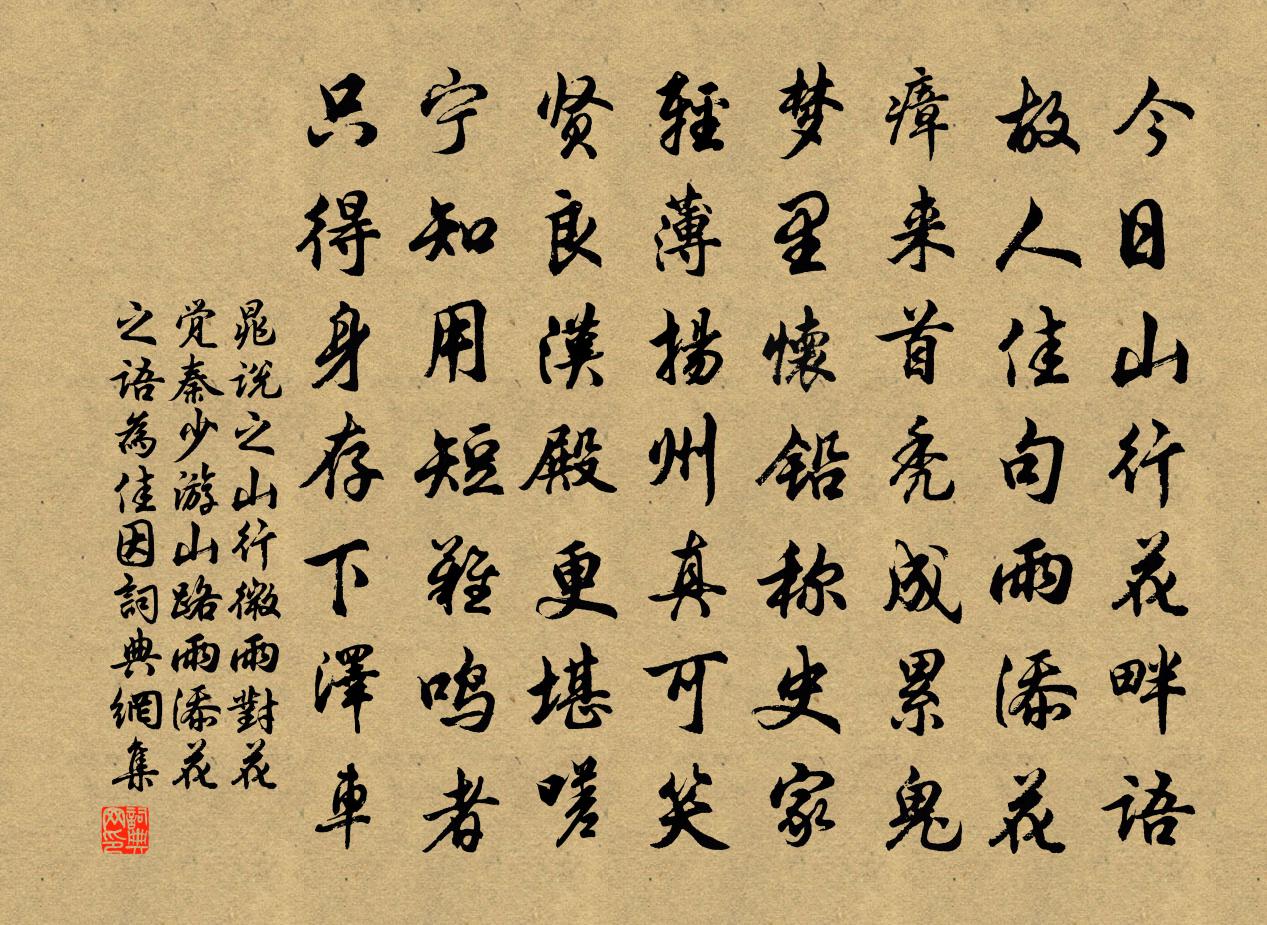 今日山行花畔語
故人佳句雨添花
瘴来首秃成累鬼
梦里懷铅称史家
輕薄揚州真可笑
贤良漢殿更堪嗟
宁知用短難鸣者
只得身存下澤車
晁说之山行微雨對花
觉秦少游山路雨添花
之語為佳因詞典網集
詞典
网印